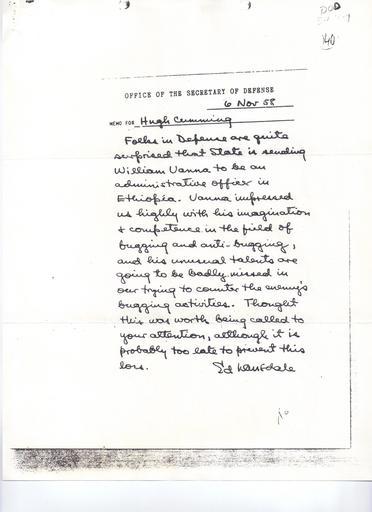 DOD
140
OFFICE OF THE SECRETARY OF DEFENSE
6 Nov 58
MEMO FOR Hugh Cumming
Folks in Defense are quite
surprised that State is sending
William Uanna to be an
administrative officer in
Ethiopia. Uanna impressed
us highly with his imagination
& competence in the field of
bugging and anti-bugging,
and his unusual talents are
going to be badly missed in
our trying to counter the enemy's
bugging activities. Thought
this was worth being called to
your attention, although it is
probably too late to prevent this
loss. Ed Lansdale